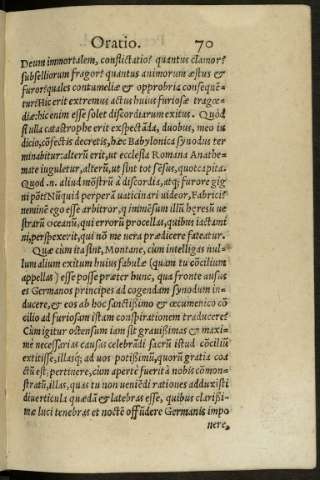 Oratio. 70
Deum immortalem, conflictatio? quantus clamor?
subselliorum fragor? quantus animorum æstus &
furor? quales contumeliæ & opprobria consequẽ=
tur? Hic erit extremus actus huius furiosæ tragœ=
diæ: hic enim esse solet discordiarum exitus. Quòd
si ulla catastrophe erit expectãda, duobus, meo iu
dicio, cõfectis decretis, hæc Babylonica synodus ter
minabitur: alterũ erit, ut ecclesia Romana Anathe=
mate iuguletur, alterũ, ut sint tot sẽsus, quot capita.
Quod .n. aliud mõstrũ à discordia, atq; furore gig
ni põt? Nũquid perperã uaticinari uideor, Fabrici?
neminẽ ego esse arbitror, q immẽsum illũ hęresũ ue
strarũ oceanũ, qui errorũ procellas, quibus iactami
ni, perspexerit, qui nõ me uera prædicere fateatur.
Quæ cùm ita sint, Montane, cùm intelligas nul=
lum alium exitum huius fabulæ (quam tu cõcilium
appellas) esse posse præter hunc, qua fronte ausus
es Germanos principes ad cogendam synodum in=
ducere, & eos ab hoc sanctissimo & œcumenico cõ
cilio ad furiosam istam conspirationem traducere?
Cùm igitur ostensum iam sit grauissimas & maxi=
mè necessarias causas celebrãdi sacrũ istud cõciliũ
extitisse, illasq; ad uos potissimũ, quorũ gratia coa
ctũ est, pertinere, cùm apertè fuerit à nobis cõmon=
stratũ, illas, quas tu non ueniẽdi rationes adduxisti
diuerticula quædã & latebras esse, quibus clarissi=
mæ luci tenebras et noctẽ offũdere Germanis impo
nere,